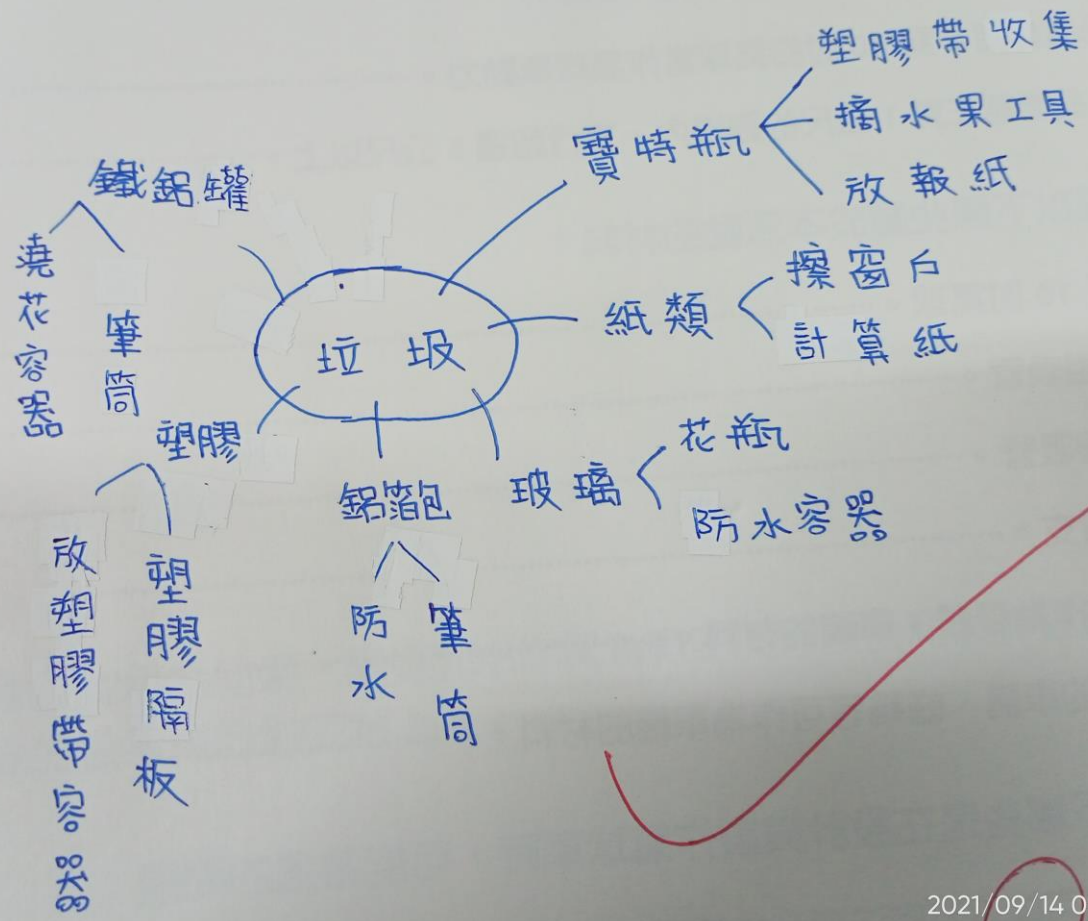 垃圾
寶特瓶
塑膠帶收集
摘水果工具
放報紙
紙類
擦窗戶
計算紙
玻璃
花瓶
防水容器
鋁箔包
防水
筆筒
塑膠
放塑膠帶容器
塑膠隔板
鐵鋁罐
澆花容器
筆筒
2021/09/14 0